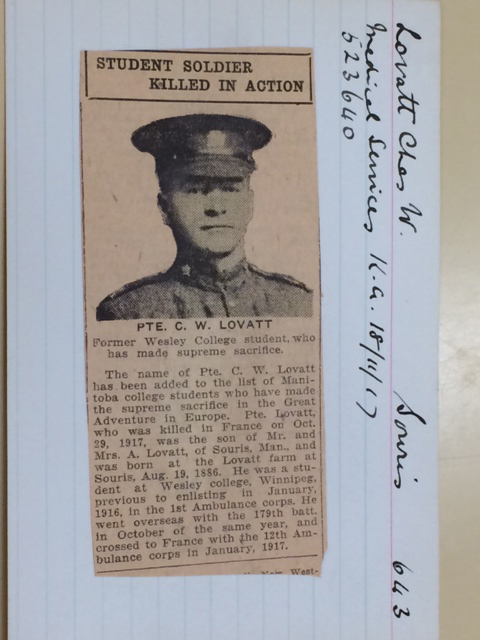 Lovatt Chas W. Souris 643
Medical Services K.a. 18/11/17
523640
STUDENT SOLDIER
KILLED IN ACTION
PTE. C. W. LOVATT
Former Wesley College student, who
has made supreme sacrifice.
The name of Pte. C. W. Lovatt
has been added to the list of Mani-
toba college students who have made
the supreme sacrifice in the Great
Adventure in Europe. Pte. Lovatt,
who was killed in France on Oct.
29, 1917, was the son of Mr. and
Mrs. A. Lovatt, of Souris, Man., and
was born at the Lovatt farm at
Souris, Aug. 19, 1886. He was a stu-
dent at Wesley college, Winnipeg,
previous to enlisting in January,
1916, in the 1st Ambulance corps. He
went overseas with the 179th batt.
in October of the same year, and
crossed to France with the 12th Am-
bulance corps in January, 1917.
West-